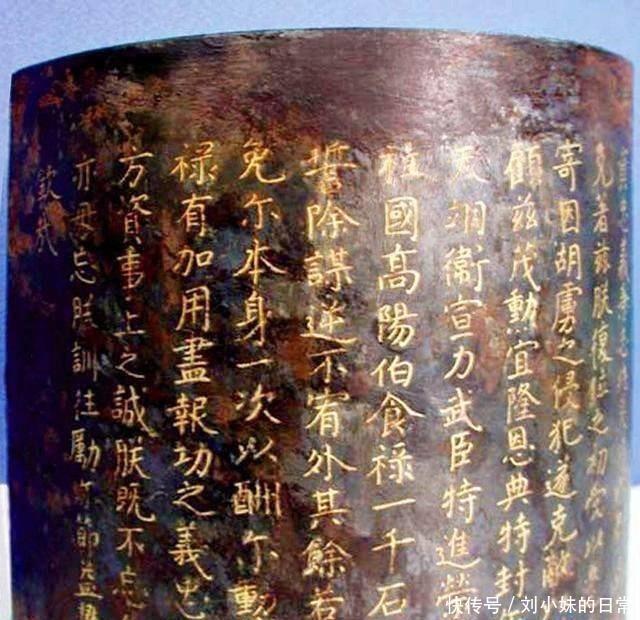 茲朕復位之初
寄因胡虜之侵犯遂克敵
顧茲茂勳宜隆恩典特封
天翊衛宣力武臣特進榮
柱國高陽伯食禄一千石
誓除謀逆不宥外其餘若
免尔本身一次以酬尔勳
禄有加用盡報功之義忠
方資事上之誠朕既不忘
亦毋忘朕訓往勵尔節益
欽哉
快传号/刘小妹的日常